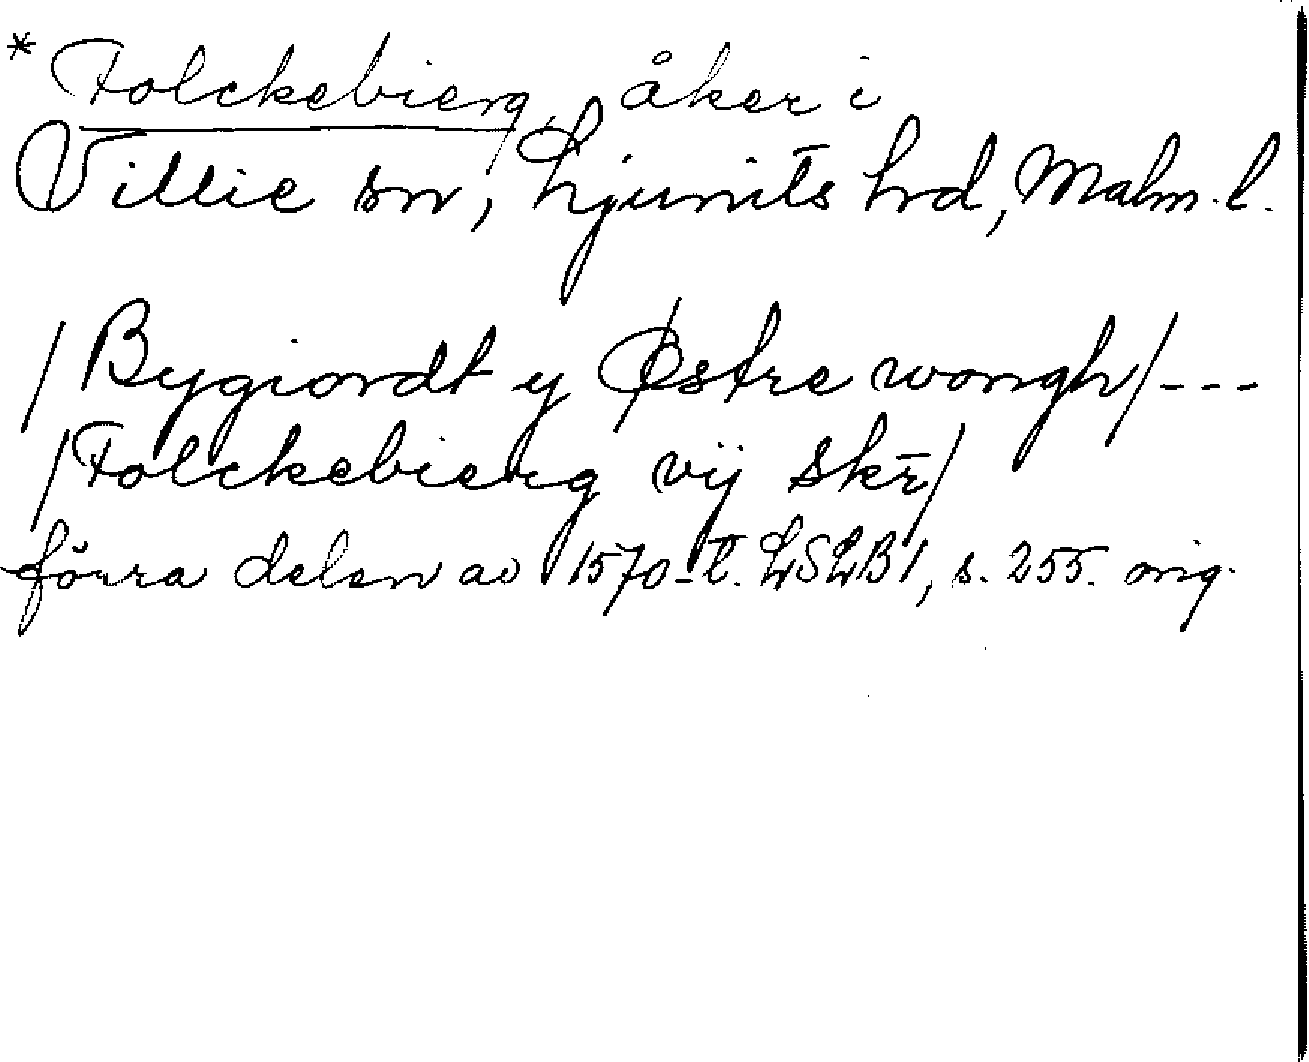 * Folckebierg, åker i
Villie sn, Ljunits hd, Malm. l.
/Bygiordt y Østre wongh/ ---
/Folckebierg vij skr̄/
förra delen av 1570-t. LSLB1, s. 255. orig.